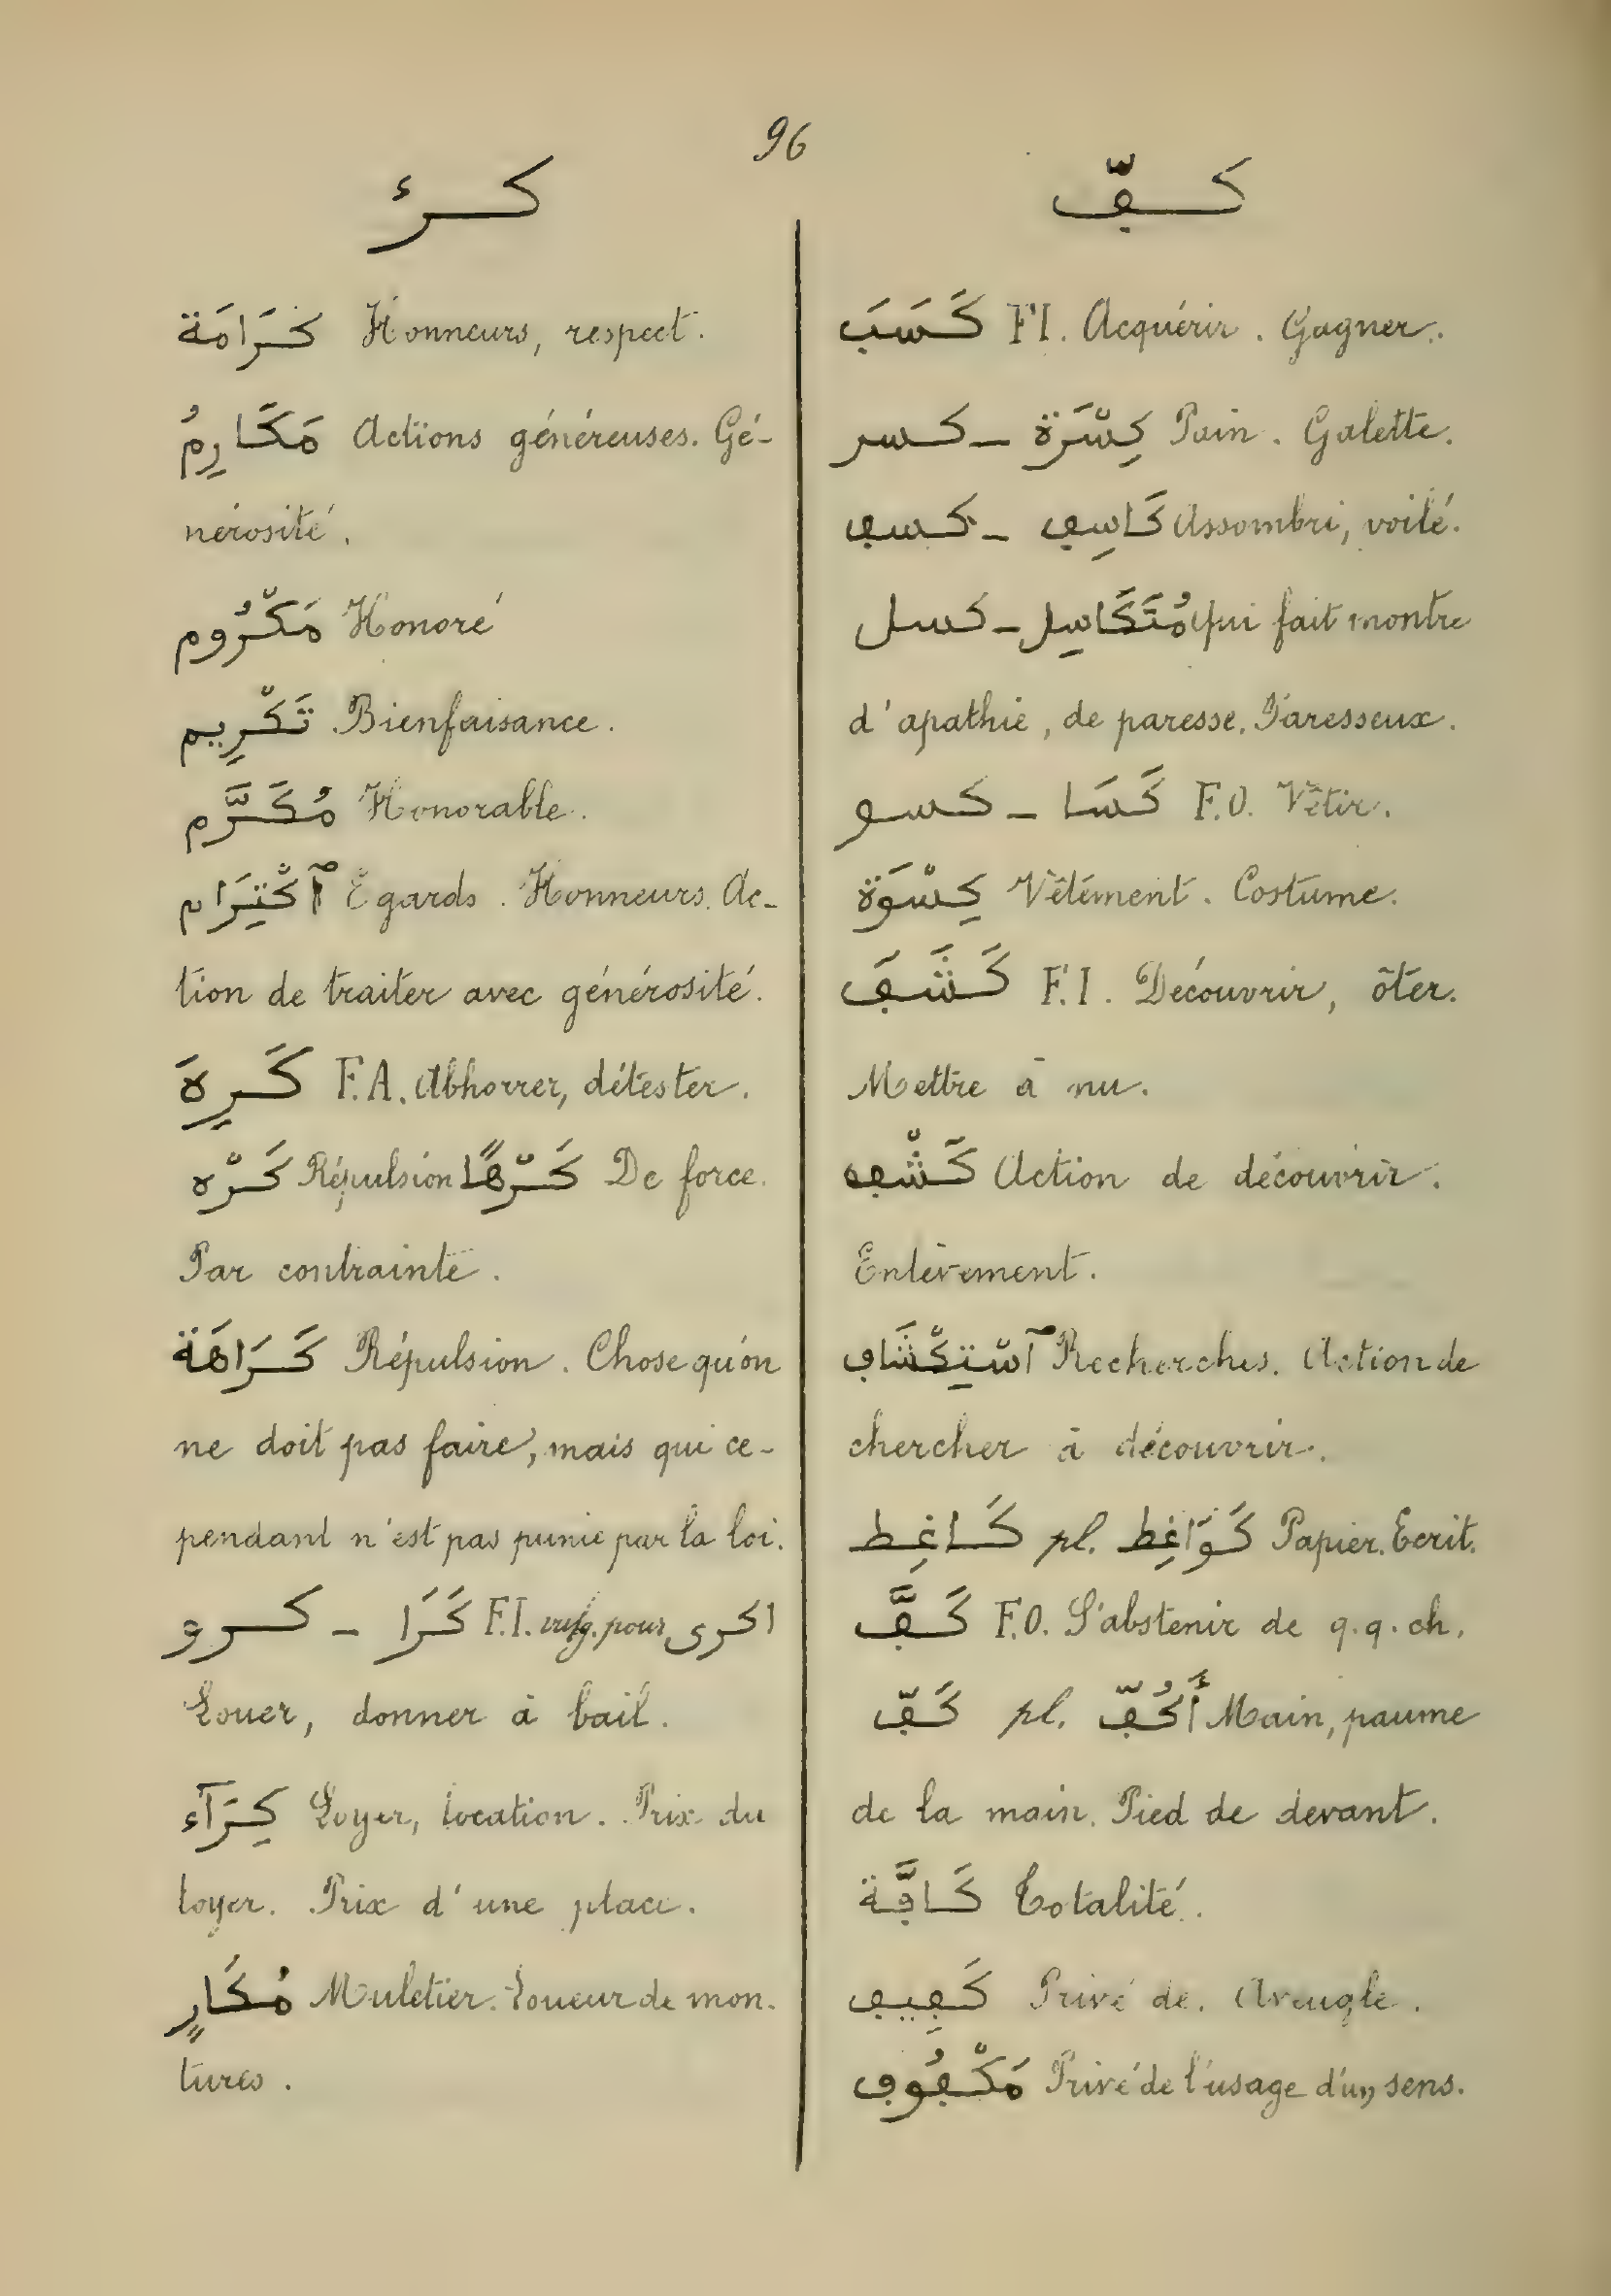 96
كرء
كَرَامَة Honneurs, respect.
مَكَارِمُ Actions généreuses. Gé-
nérosité.
مَكْرُوم Honoré
تَكْرِيم Bienfaisance.
مُكَرَّم Honorable.
ٱكْتِرَام Egards. Honneurs. Ac-
tion de traiter avec générosité.
كَرِهَ F.A. Abhorrer, détester.
كَرْه Répulsion كَرْهًا De force.
Par contrainte.
كَرَاهَة Répulsion. Chose qu'on
ne doit pas faire, mais qui ce-
pendant n'est pas punie par la loi.
كرو – كَرَا F.I. vulg. pour اكرى
Louer, donner à bail.
كِرَآء Loyer, location. Prix du
loyer. Prix d'une place.
مُكَارٍ Muletier. Loueur de mon-
tures.
كڢّ
كَسَبَ F.I. Acquérir. Gagner.
كسر – كِسْرَة Pain. Galette.
كسڢ – كَاسِڢ Assombri, voilé.
كسل – مُتَكَاسِل Qui fait montre
d'apathie, de paresse. Paresseux.
كسو – كَسَا F.O. Vêtir.
كِسْوَة Vêtement. Costume.
كَشَڢَ F.I. Découvrir, ôter.
Mettre à nu.
كَشْڢ Action de découvrir.
Enlèvement.
ٱسْتِكْشَاڢ Recherches. Action de
chercher à découvrir.
كَاغِط pl. كَوَاغِط Papier. Ecrit.
كَڢَّ F.O. S'abstenir de q.q. ch.
كَڢّ pl. أَكُڢّ Main, paume
de la main. Pied de devant.
كَاڢَّة Totalité.
كَڢِيڢ Privé de. Aveugle.
مَكْڢُوڢ Privé de l'usage d'un sens.